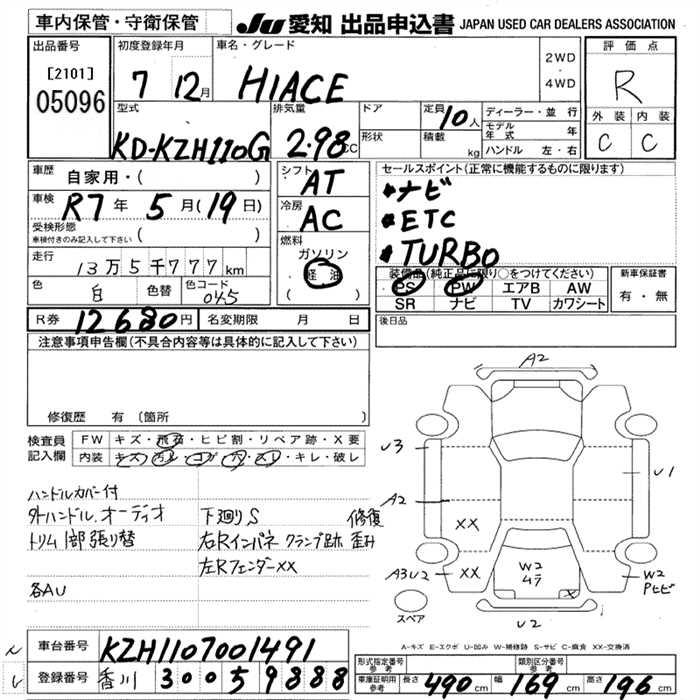 車内保管・守衛保管 JU 愛知 出品申込書 JAPAN USED CAR DEALERS ASSOCIATION
出品番号 初度登録年月 車名・グレード 評価点
[2101]
05096
7 12月 HIACE 2WD ・ 4WD R
型式 排気量 ドア 定員 10人 ディーラー・並行 外装 内装
KD-KZH110G 2.98CC 形状 積載 kg モデル年式 年 C C
ハンドル 左・右
車歴 自家用・( ) シフト AT セールスポイント(正常に機能するものに限ります)
車検 R7年 5月(19日) 冷房 AC ・ナビ
受検形態 ・ETC
車検付きのみ記入して下さい ( ) 燃料 ・TURBO
走行 13万5千777km ガソリン
軽油
( )
装備品(純正品に限り○をつけてください) 新車保証書
PS PW エアB AW 有・無
SR ナビ TV カワシート
色 白 色替 色コード 045
R券 12680円 名変期限 月 日 後日品
注意事項申告欄(不具合内容等は具体的に記入して下さい)
修復歴 有 〔箇所
検査員記入欄 FW キズ・飛石・ヒビ割・リペア跡・X要
内装 キズ・汚レ・コゲ・穴・スレ・キレ・破レ
ハンドルカバー付
外ハンドル.オーディオ 下廻りS 修復
トリム1部張り替 右Rインパネ クランプ跡 歪み
左Rフェンダーxx
各AU
A2
U3
U1
A2
XX
A3U2 XX W2 ムラ X W2 Pヒビ
スペア U2
A-キズ E-エクボ U-凹み W-補修跡 S-サビ C-腐食 XX-交換済
車台番号 KZH1107001491
登録番号 香川 300 ら 9888
形式指定番号 参考 類別区分番号 参考
車庫証明用 参考 長さ 490cm 幅 169cm 高さ 196cm